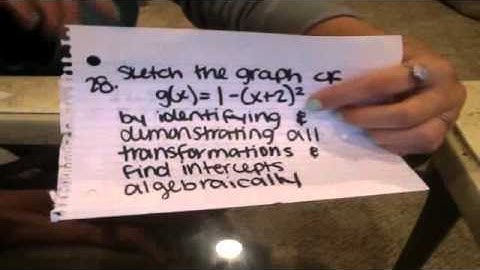 28. Sketch the graph of
g(x) = 1 - (x+2)²
by identifying &
dumonstrating all
transformations &
find intercepts
algebraically